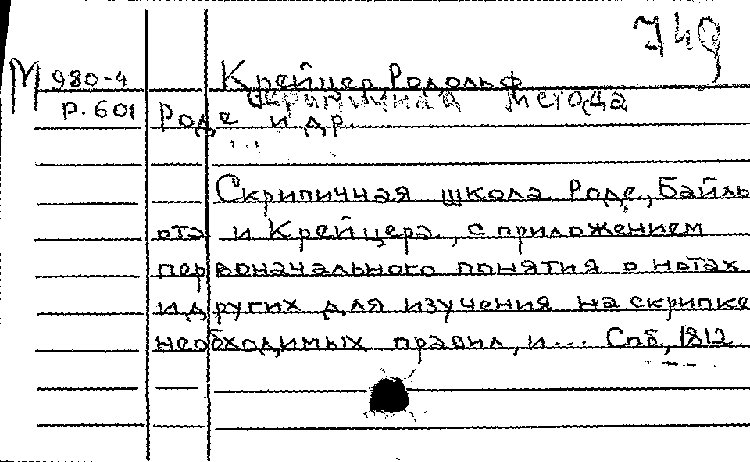 749
М 980-4 Крейцер Родольф
Р. 601 Скрипичная метода
Роде и др.
...
Скрипичная школа Роде, Байль
ота и Крейцера, с приложением
первоначального понятия о нотах
и других для изучения на скрипке
необходимых правил, и... Спб, 1812